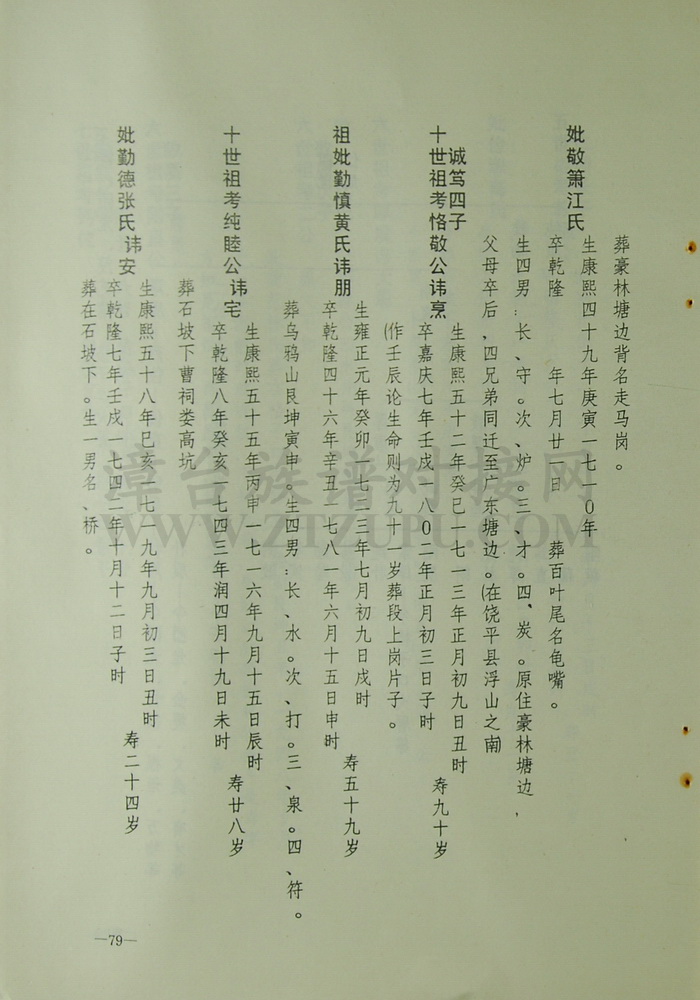 葬豪林塘边背名走马岗。
妣敬箫江氏
生康熙四十九年庚寅一七一0年
卒乾隆 年七月廿一日 葬百叶尾名龟嘴。
生四男：长、守。次、炉。三、才。四、炭。原住豪林塘边，
父母卒后，四兄弟同迁至广东塘边。(在饶平县浮山之南
诚笃四子
十世祖考恪敬公讳烹
生康熙五十二年癸巳一七一三年正月初九日丑时
卒嘉庆七年壬戌一八0二年正月初三日子时
寿九十岁
(作壬辰论生命则为九十一岁葬段上岗片子。
祖妣勤慎黄氏讳朋
生雍正元年癸卯一七二三年七月初九日戌时
卒乾隆四十六年辛丑一七八一年六月十五日申时
寿五十九岁
葬乌鸦山艮坤寅申。生四男：长、水。次、打。三、泉。四、符。
十世祖考纯睦公讳宅
生康熙五十五年丙申一七一六年九月十五日辰时
卒乾隆八年癸亥一七四三年润四月十九日未时
寿廿八岁
葬石坡下曹祠娄高坑
妣勤德张氏讳安
生康熙五十八年巳亥一七一九年九月初三日丑时
卒乾隆七年壬戌一七四二年十月十二日子时
寿二十四岁
葬在石坡下。生一男名、桥。
—79—
漳台族谱对接网
WWW.ZTZUPU.COM